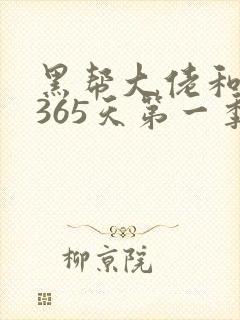 黑帮大佬和
365天第一季
柳京院